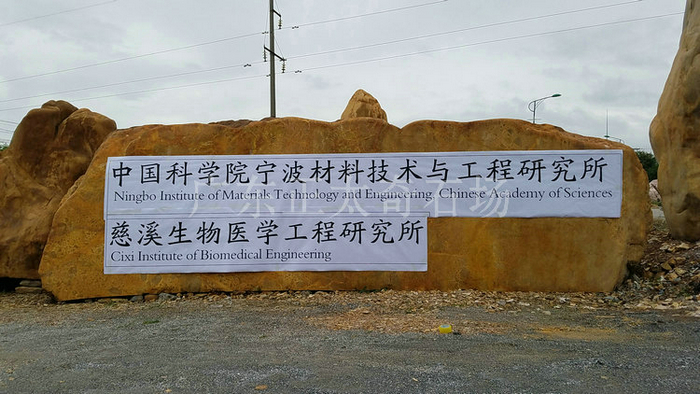 中国科学院宁波材料技术与工程研究所
Ningbo Institute of Materials Technology and Engineering, Chinese Academy of Sciences
慈溪生物医学工程研究所
Cixi Institute of Biomedical Engineering